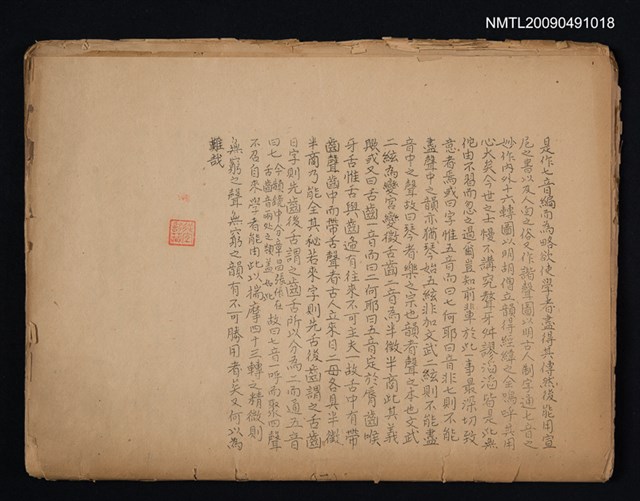 NMTL20090491018
是作七音編而為略欲使學者盡得其傳然後能用宣
尼之書以及人面之俗又作諧聲圖以明古人制字通七音之
妙作內外十六轉圖以明胡僧立韻得經緯之全嗚呼共用
心大矣今世之士慢不講究聱牙舛謬滔滔皆是此無
他由不習而忽之過爾豈知前輩於此一事最深切致
意者焉或曰字惟五音而曰七何耶曰音非七則不能
盡聲中之韻亦猶琴始五絃非加文武二絃則不能盡
音中之聲故曰琴者樂之宗也韻者聲之本也文武
二絃為變宮變徵舌齒二音為半徵半商此其義
歟或又曰舌齒一音而曰二何耶曰五音定於脣齒喉
牙舌惟舌與齒通有往來不可主夫一故舌中有帶
齒聲齒中而帶舌聲者古人立來日二母各具半徵
半商乃能全其秘若來字則先舌後齒謂之舌齒
日字則先齒後舌謂之齒舌所以分為二而通五音
曰七故曰七音一呼而聚四聲
不召自來學者能由此以揣摩四十三轉之精微則
無窮之聲無窮之韻有不可勝用者矣又何以為
難哉